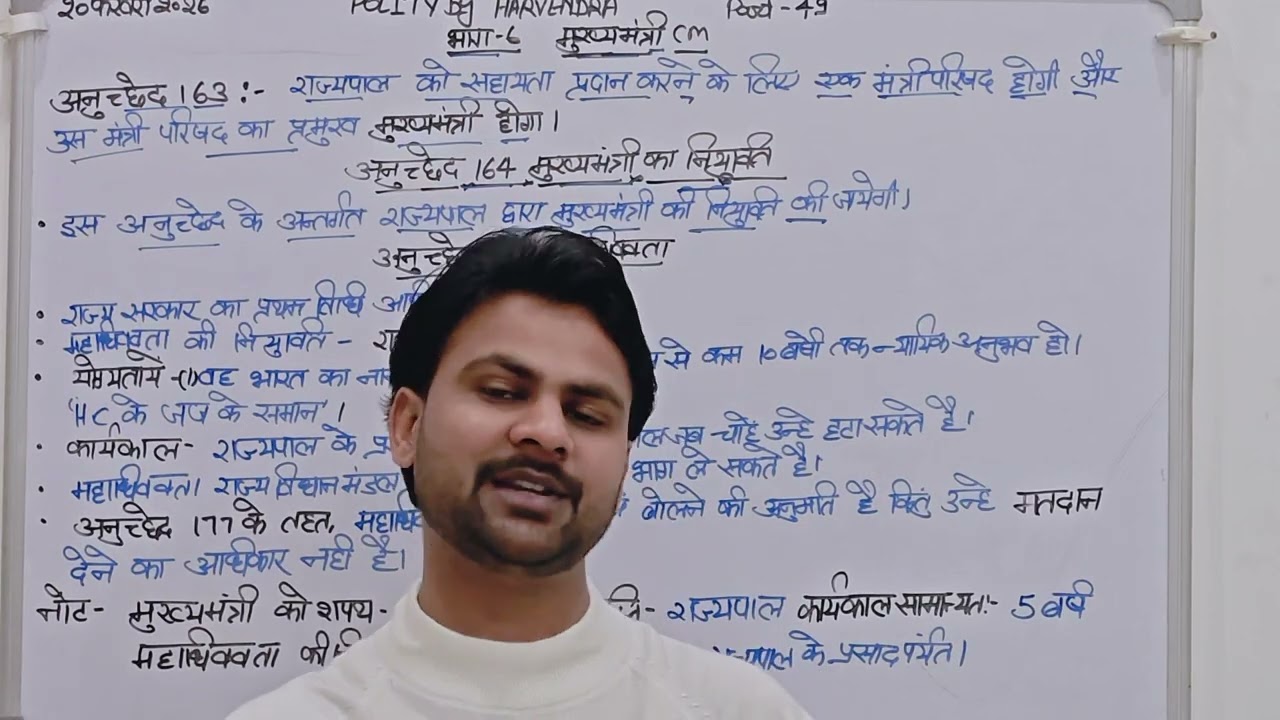 20 फरवरी 2026 POLITY By HARVENDRA दिव्य - 49
भाग-6 मुख्यमंत्री CM
अनुच्छेद 163:- राज्यपाल को सहायता प्रदान करने के लिए एक मंत्रीपरिषद होगी और
उस मंत्री परिषद का प्रमुख मुख्यमंत्री होगा।
अनुच्छेद 164 मुख्यमंत्री का नियुक्ति
• इस अनुच्छेद के अन्तर्गत राज्यपाल द्वारा मुख्यमंत्री की नियुक्ति की जयेगी।
• राज्य सरकार का प्रथम विधि
• महाधिवक्ता की नियुक्ति - से कम 10 वर्षो तक न्यायिक अनुभव हो।
• योग्यतायें -(1) वह भारत का
'HC के जज के समान'।
• कार्यकाल - राज्यपाल के जब चाहे उन्हे हटा सकते है।
• महाधिवक्ता राज्य विधान मंडल भाग ले सकते है।
• अनुच्छेद 177 के तहत, बोलने की अनुमति है किंतु उन्हे मतदान
देने का अधिकार नही है।
नोट- मुख्यमंत्री को शपथ - राज्यपाल कार्यकाल सामान्यत:- 5 वर्ष
महाधिवक्ता की के प्रसाद पर्यंत।